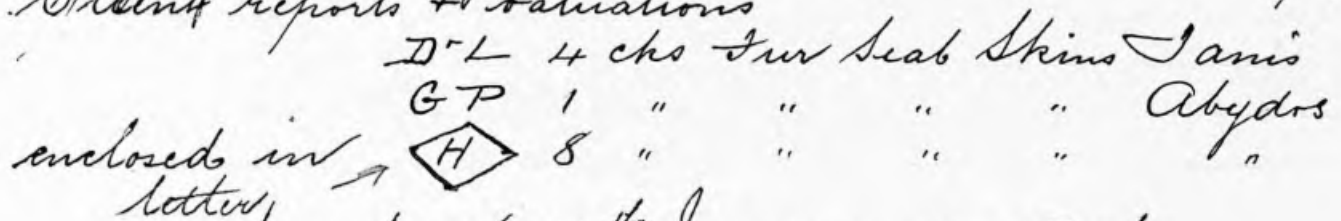 reports & valuations
D-L 4 cks Fur Seal Skins Tanis
GP 1 " " " " Abydos
enclosed in H 8 " " " " "
letter